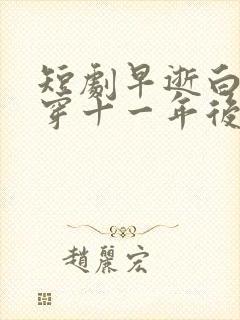 短劇早逝白
穿十一年後
趙麗宏